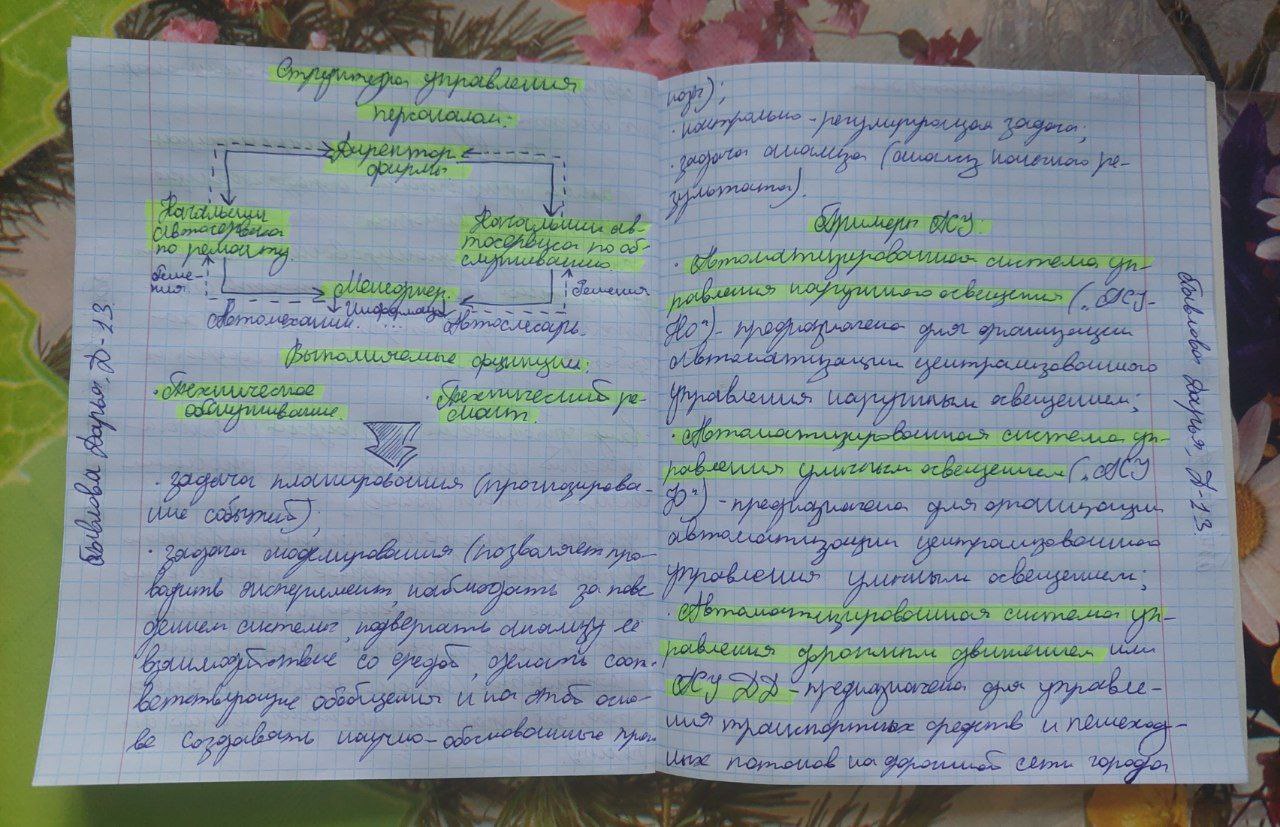 Структура управления
персоналом:
Директор
фирмы
Начальник
автосервиса
по ремонту
Начальник ав-
тосервиса по об-
служиванию.
Реше-
ния
Менеджер.
Информация
Решения
Автомеханик.
Автослесарь.
Выполняемые функции:
· Техническое
обслуживание
· Технический ре-
монт.
· задача планирования (прогнозирова-
ние событий);
· задача моделирования (позволяет про-
водить эксперимент, наблюдать за пове
дением системы, подвергать анализу её
взаимодействие со средой, делать соот-
ветствующие обобщения и на этой осно-
ве создавать научно-обоснованные прог
Дарья, Д-13
нозы);
· контрольно-регулирующая задача;
· задача анализа (анализ конечного ре-
зультата).
Примеры АСУ:
· Автоматизированная система уп-
равления наружного освещения („АСУ-
НО")- предназначена для организации
автоматизации централизованного
управления наружным освещением;
· Автоматизированная система уп-
равления уличным освещением („АСУ
") - предназначена для организации
автоматизации централизованного
управления уличным освещением;
· Автоматизированная система уп-
равления дорожным движением или
АСУ ДД - предназначена для управле-
ния транспортных средств и пешеход-
ных потоков на дорожной сети города
Дарья, Д-13